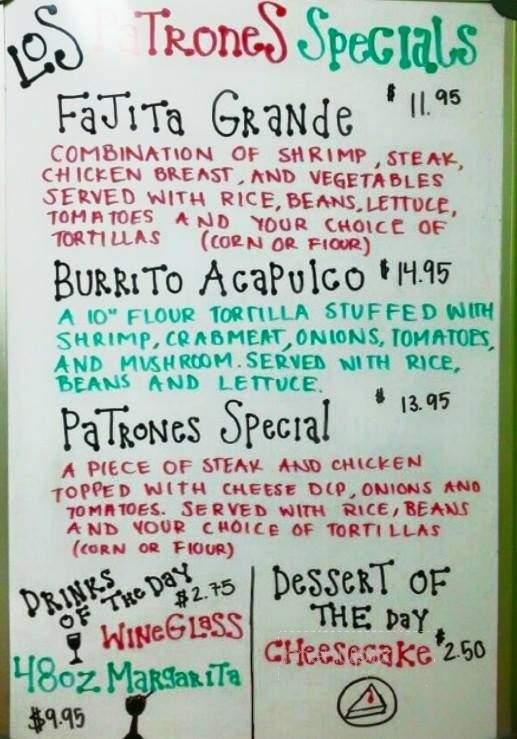 LOS PaTRoNeS SpecIaLs
FaJITa GRaNde $11.95
COMBINATION OF SHRIMP, STEAK,
CHICKEN BREAST, AND VEGETABLES
SERVED WITH RICE, BEANS, LETTUCE,
TOMATOES AND YOUR CHOICE OF
TORTILLAS (CORN OR FlOUR)
BURRITO AcaPUlCO $14.95
A 10" FLOUR TORTILLA STUFFED WITH
SHRIMP, CRABMEAT, ONIONS, TOMATOES,
AND MUSHROOM. SERVED WITH RICE,
BEANS AND LETTUCE.
PaTRoNes SpecIal $13.95
A PIECE OF STEAK AND CHICKEN
TOPPED WITH CHEESE DIP, ONIONS AND
TOMATOES. SERVED WITH RICE, BEANS
AND YOUR CHOICE OF TORTILLAS
(CORN OR FlOUR)
DRINKS
OF THE DaY
$2.75
WINEGLaSS
48oz MaRGaRITa
$9.95
DeSSeRT OF
THE DaY
CHeesecaKe $2.50